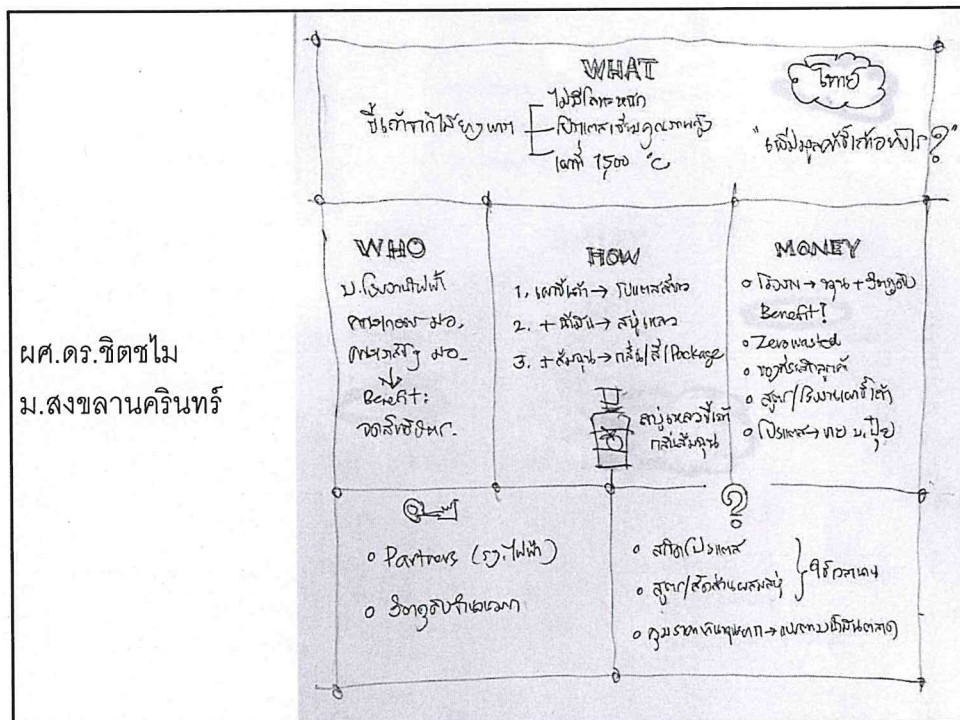 ผศ.ดร.ชิตชไม
ม.สงขลานครินทร์
WHAT
โจทย์
ขี้เถ้าจากไม้ยางพารา
ไม่มีโลหะหนัก
โปแตสเซียมคุณภาพสูง
เผาที่ 1500 °C
"เพิ่มมูลค่าขี้เถ้าอย่างไร?"
WHO
บ.โรงงานไฟฟ้า
มอ.
มอ.
Benefit:
จดสิทธิบัตร.
HOW
1. เผาขี้เถ้า → โปแตสสีขาว
2. + น้ำมัน → สบู่เหลว
3. + สมุนไพร → กลิ่น/สี/Package
สบู่เหลวขี้เถ้า
MONEY
โรงงาน → ทุน + วัตถุดิบ
Benefit?
Zero wasted
ของที่ระลึกลูกค้า
สูตร/โรงงานเผาขี้เถ้า
โปแตส → ขาย บ.ปุ๋ย
Partners (รง.ไฟฟ้า)
วัตถุดิบจำนวนมาก
?
สกัดโปแตส
สูตร/สัดส่วนผสมสบู่
ใช้เวลานาน